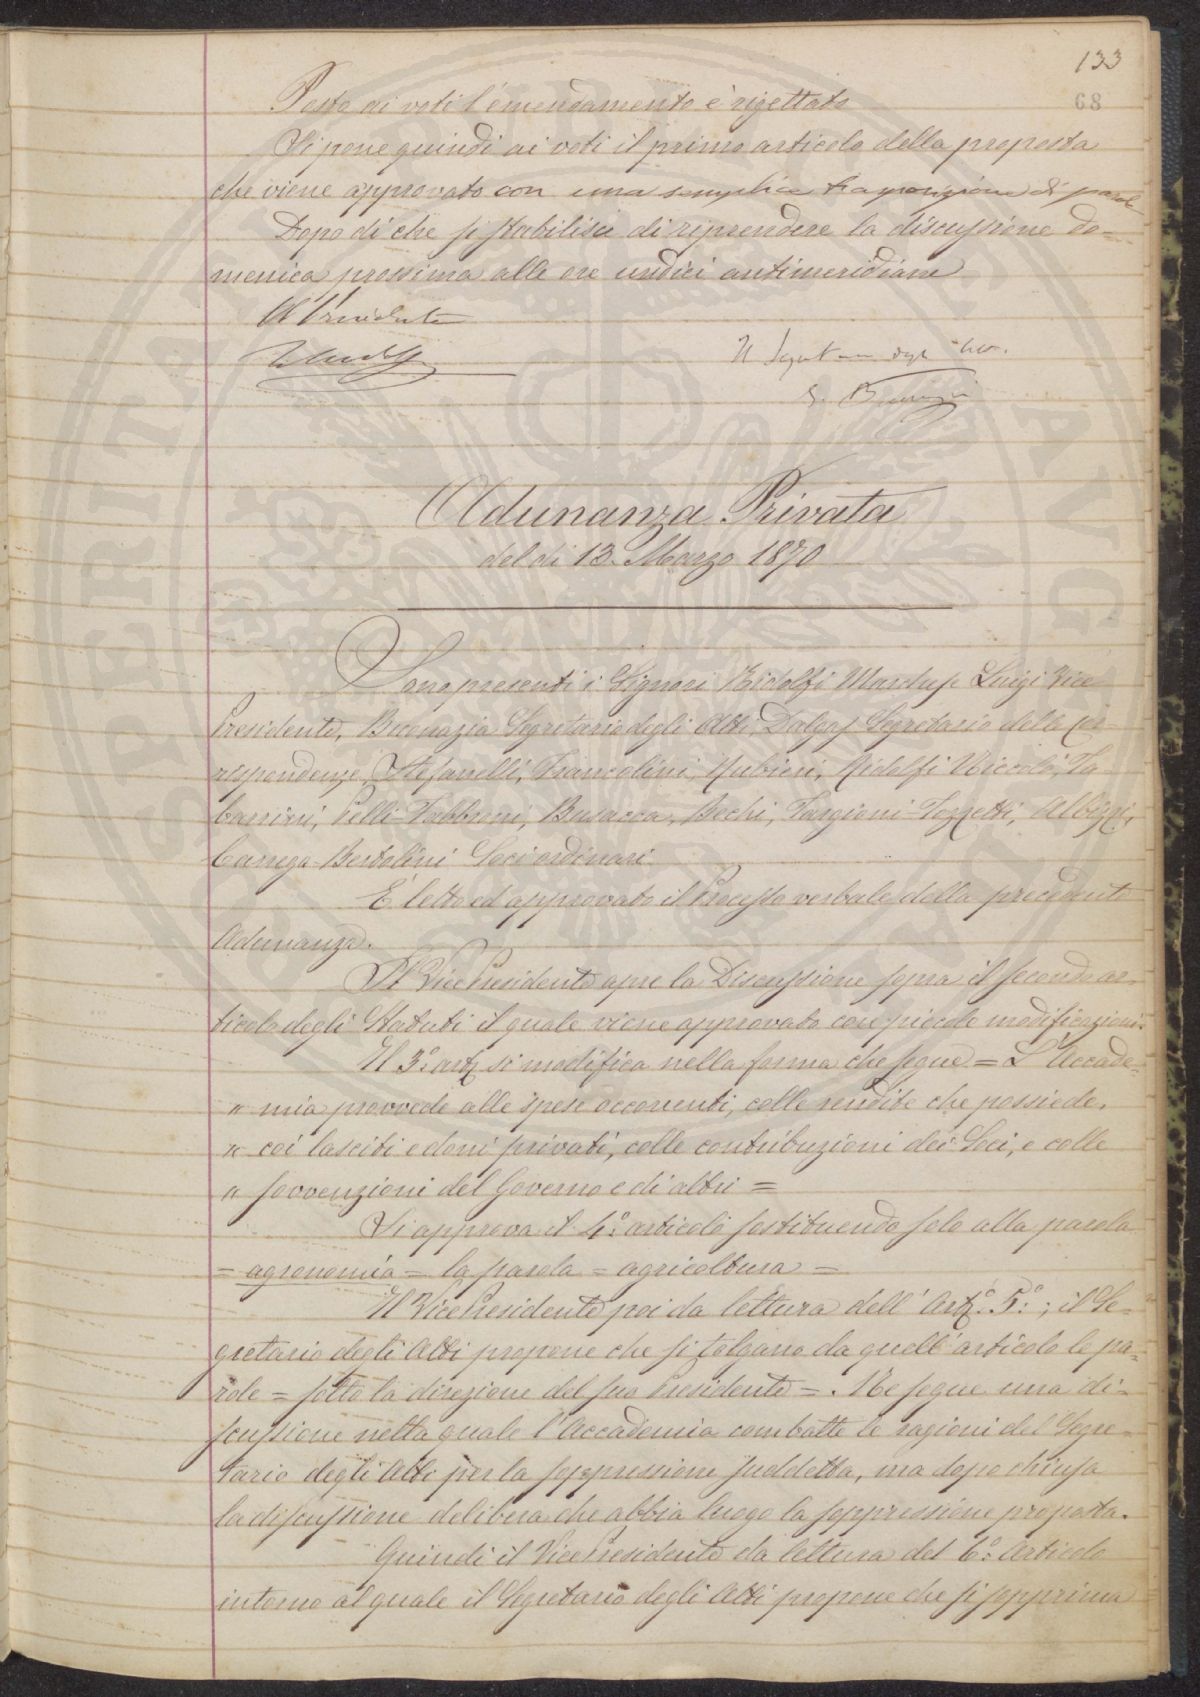 133
68
Posto ai voti l'emendamento è rigettato
Si pone quindi ai voti il primo articolo della proposta
che viene approvato con una semplice trasposizione di parole
Dopo di che si stabilisce di riprendere la discussione do-
menica prossima alle ore undici antimeridiane
Il Presidente
Il Segretario degli Atti
Adunanza Privata
del dì 13. Marzo 1870
Sono presenti i Signori Ridolfi March.se Luigi Vice
Presidente, Buonazia Segretario degli Atti, Dalgas Segretario delle Cor-
rispondenze, Stefanelli, Francolini, Rubieri, Ridolfi Niccolò, Ta
barrini, Pelli-Fabbroni, Busacca, Bechi, Targioni-Tozzetti, Albizzi,
Carrega Bertolini Soci ordinari
E' letto ed approvato il Processo verbale della precedente
Adunanza.
Il Vice Presidente apre la Discussione sopra il secondo ar-
ticolo degli Statuti il quale viene approvato con piccole modificazioni.
Il 3.° art. si modifica nella forma che segue = L'Accade-
" mia provvede alle spese occorrenti, colle rendite che possiede,
" coi lasciti e doni privati, colle contribuzioni dei Soci, e colle
" sovvenzioni del Governo e di altri =
Si approva il 4.° articolo sostituendo solo alla parola
= agronomia = la parola = agricoltura =
Il Vice Presidente poi da lettura dell'Art.° 5.°; il Se-
gretario degli Atti propone che si tolgano da quell'articolo le pa-
role = sotto la direzione del suo Presidente =. Ne segue una di-
scussione nella quale l'Accademia combatte le ragioni del Segre-
tario degli Atti per la soppressione suddetta, ma dopo chiusa
la discussione delibera che abbia luogo la soppressione proposta.
Quindi il Vice Presidente da lettura del 6.° Articolo
intorno al quale il Segretario degli Atti propone che si sopprima